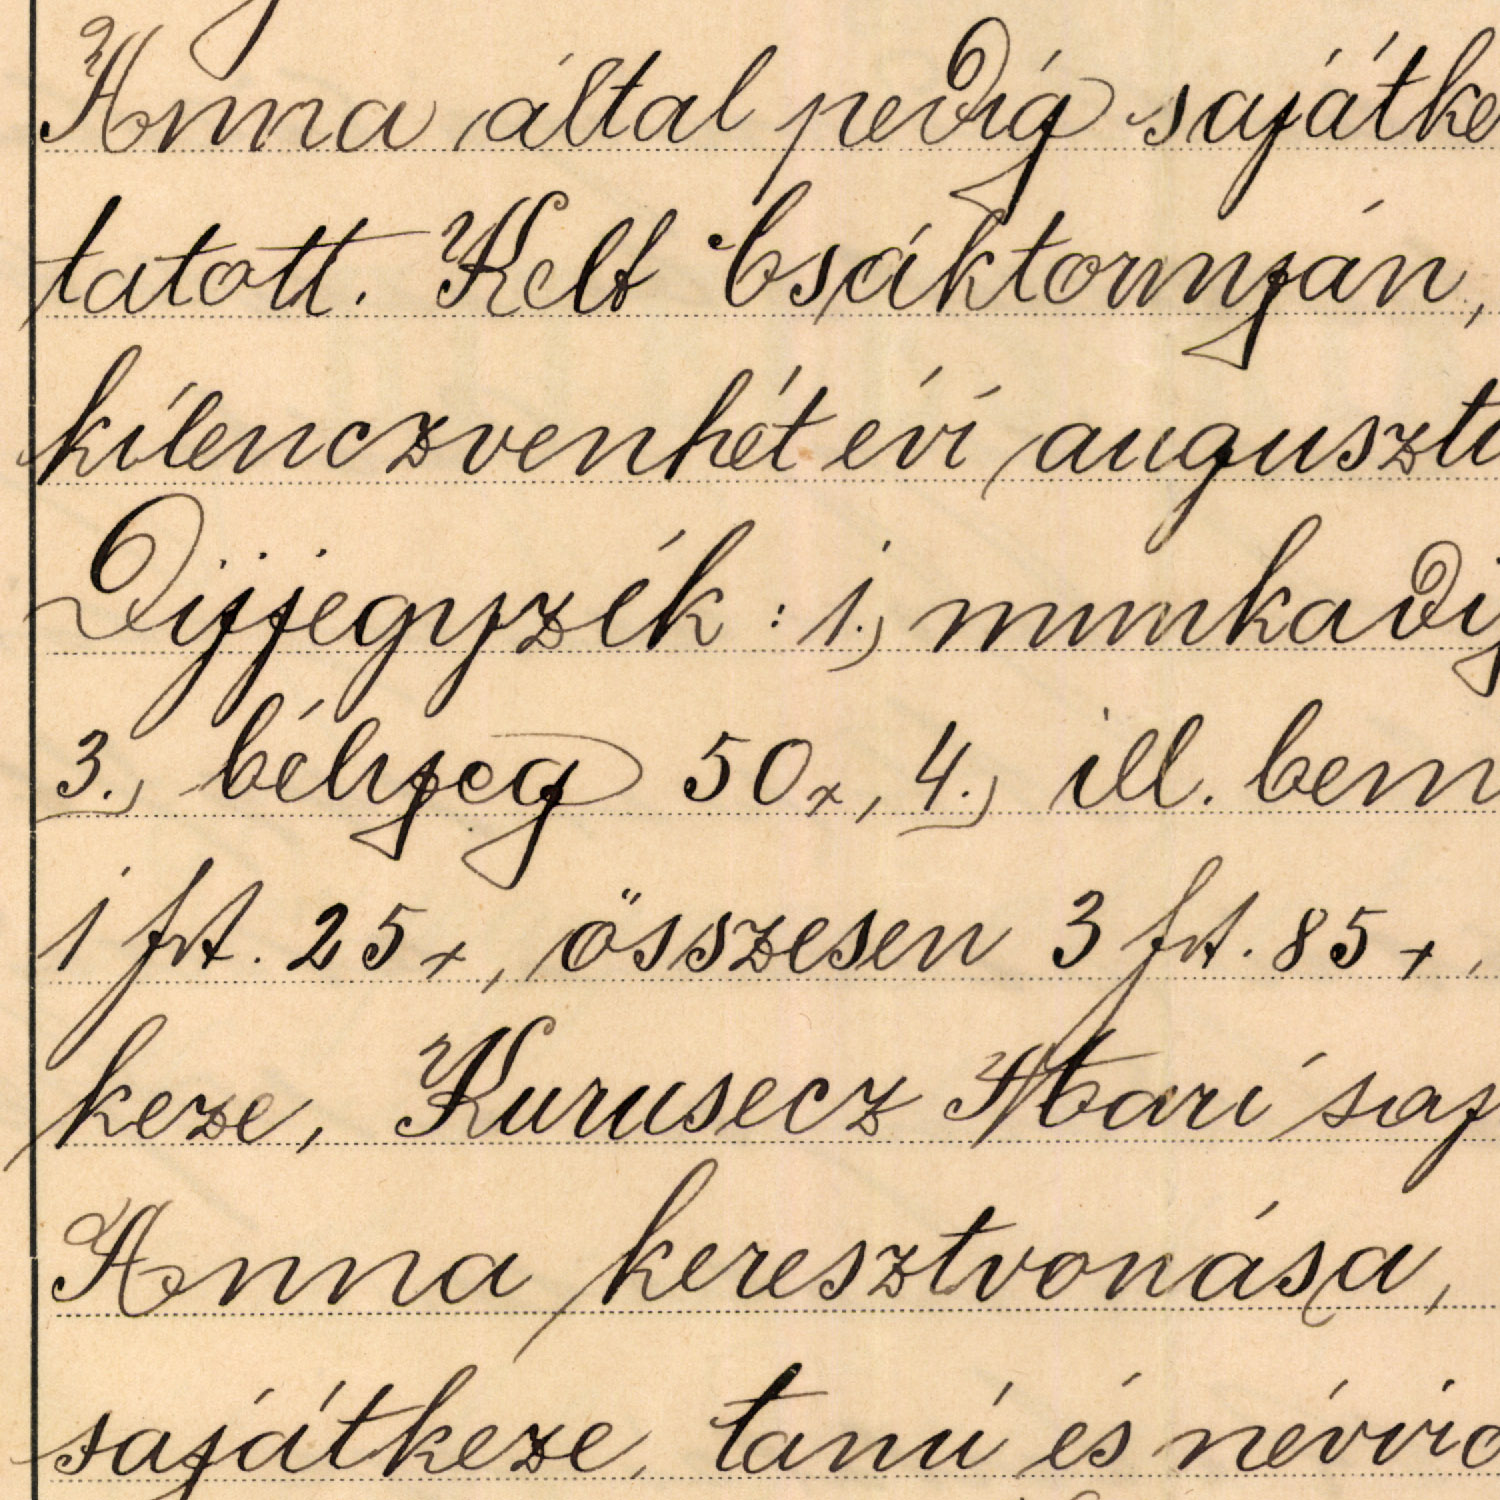 Anna által pedig sajátke
tatott. Kelt Csáktornyán,
kilenczvenhét évi auguszt
Dijjegyzék: 1., munkadij
3., bélyeg 50x, 4., ill. bem
1 frt. 25x, összesen 3 frt. 85x,
keze, Kurusecz Mari saj
Anna keresztvonása,
sajátkeze, tanú és névi